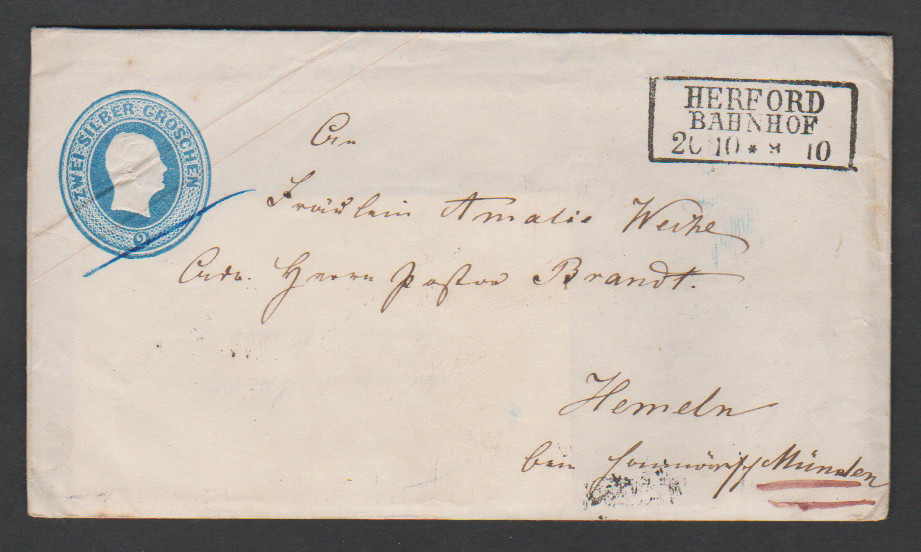 ZWEI SILBER GROSCHEN
2
HERFORD
BAHNHOF
10 * 10
An
Fräulein Amalie Weihe
Herrn Pastor Brandt.
Hemeln
bei Hannövrsch Münden